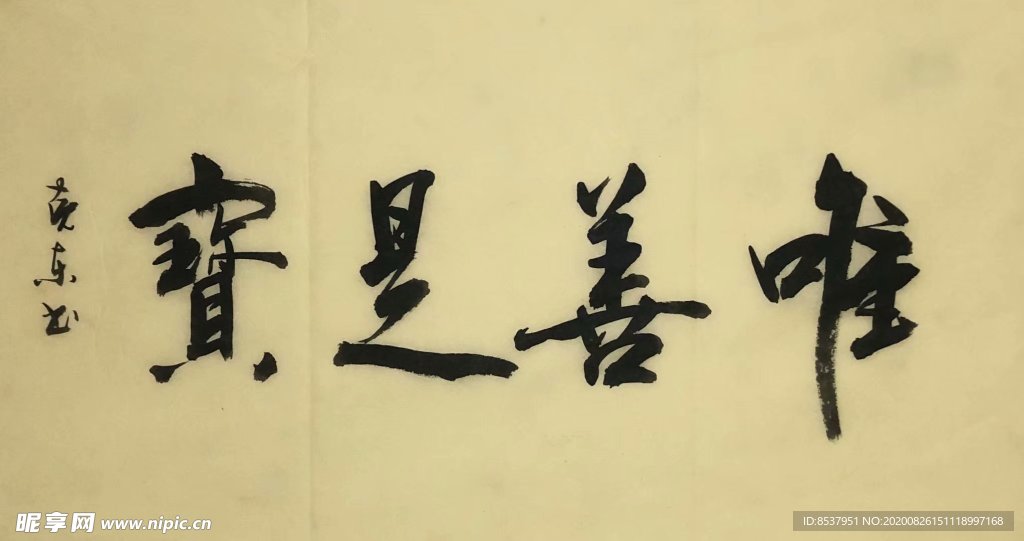 唯善是寶
克东书
昵享网 www.nipic.cn
ID:8537951 NO:20200826151118997168